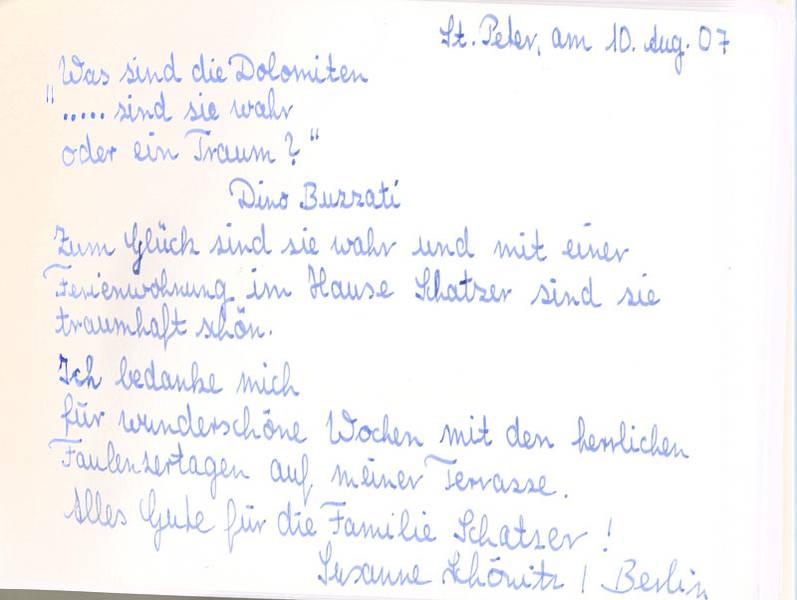 St. Peter, am 10. Aug. 07
„Was sind die Dolomiten
..... sind sie wahr
oder ein Traum?“
Dino Buzzati
Zum Glück sind sie wahr und mit einer
Ferienwohnung im Hause Schatzer sind sie
traumhaft schön.
Ich bedanke mich
für wunderschöne Wochen mit den herrlichen
Faulenzertagen auf meiner Terrasse.
Alles Gute für die Familie Schatzer!
Susanne Schönitz / Berlin